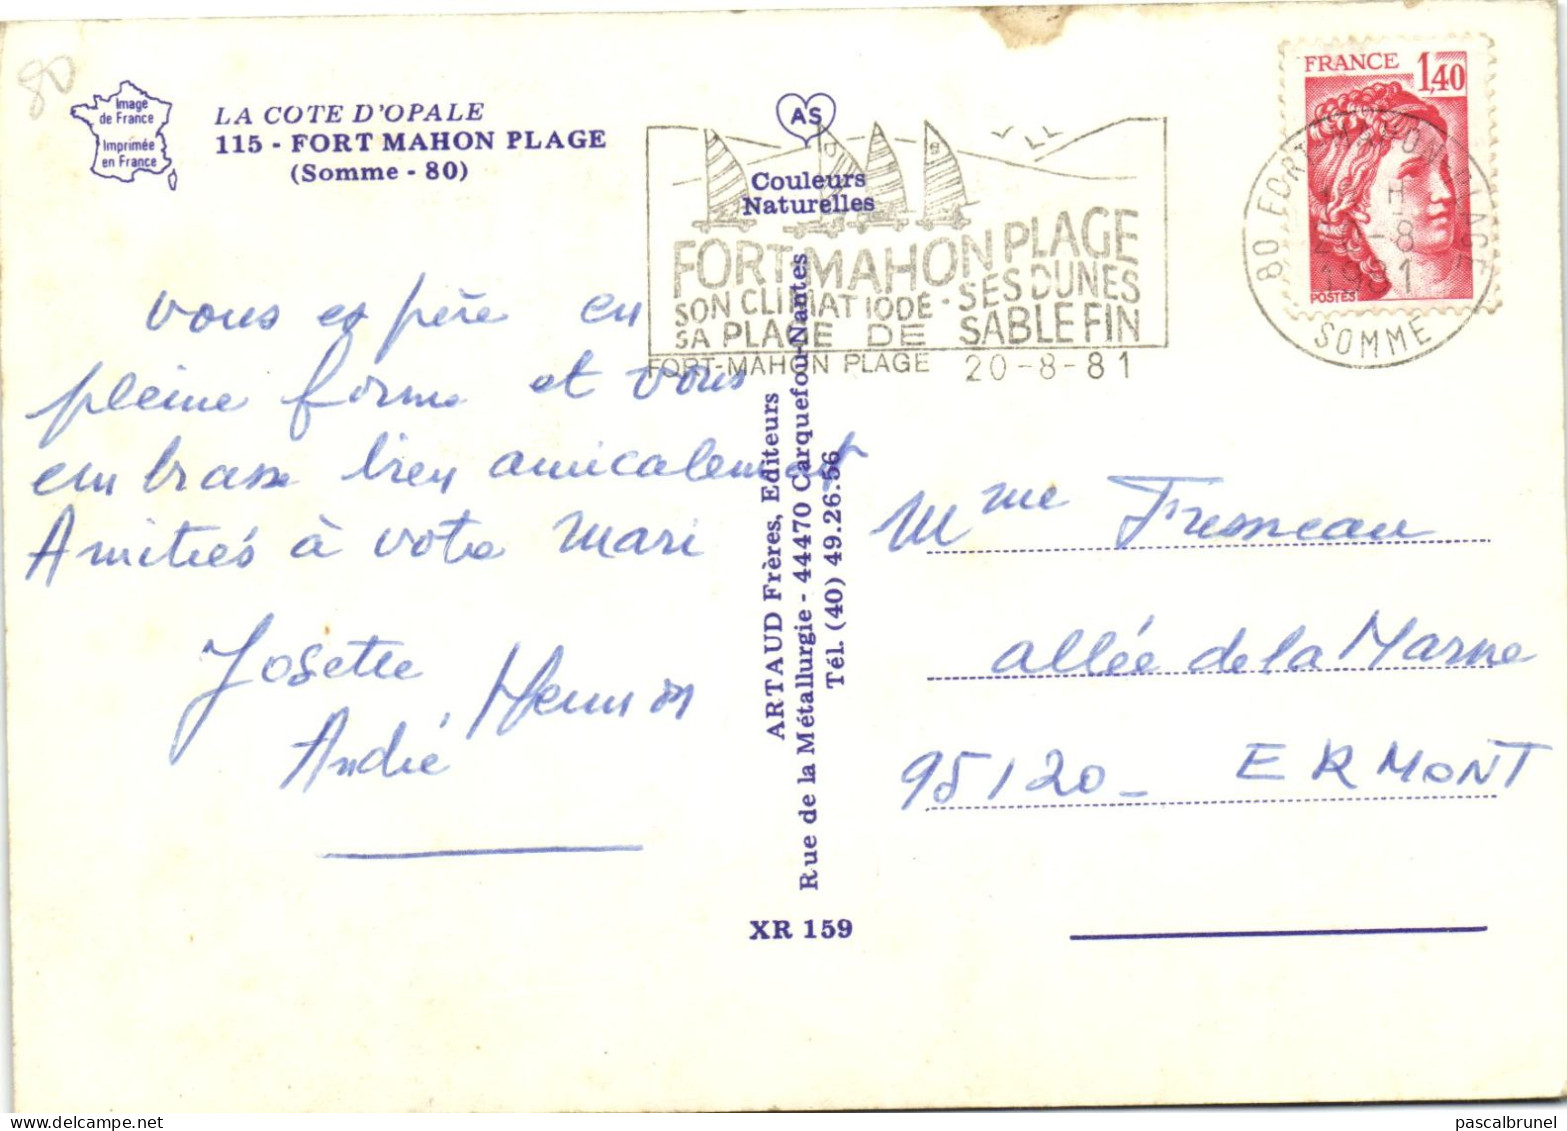 80
Image
de France
Imprimée
en France
LA COTE D'OPALE
115 - FORT MAHON PLAGE
(Somme - 80)
AS
Couleurs
Naturelles
FORT-MAHON PLAGE
SON CLIMAT IODÉ - SES DUNES
SA PLAGE DE SABLE FIN
FORT-MAHON PLAGE 20-8-81
FRANCE 1,40
POSTES
80 FORT-MAHON PLAGE
-8
1981
SOMME
vous espère en
pleine forme et vous
embrasse bien amicalement
Amitiés à votre Mari
Josette
André
ARTAUD Frères, Editeurs
Rue de la Métallurgie - 44470 Carquefou-Nantes
Tél. (40) 49.26.56
XR 159
Mme Fresneau
allée de la Marne
95120 - ERMONT
pascalbrunel